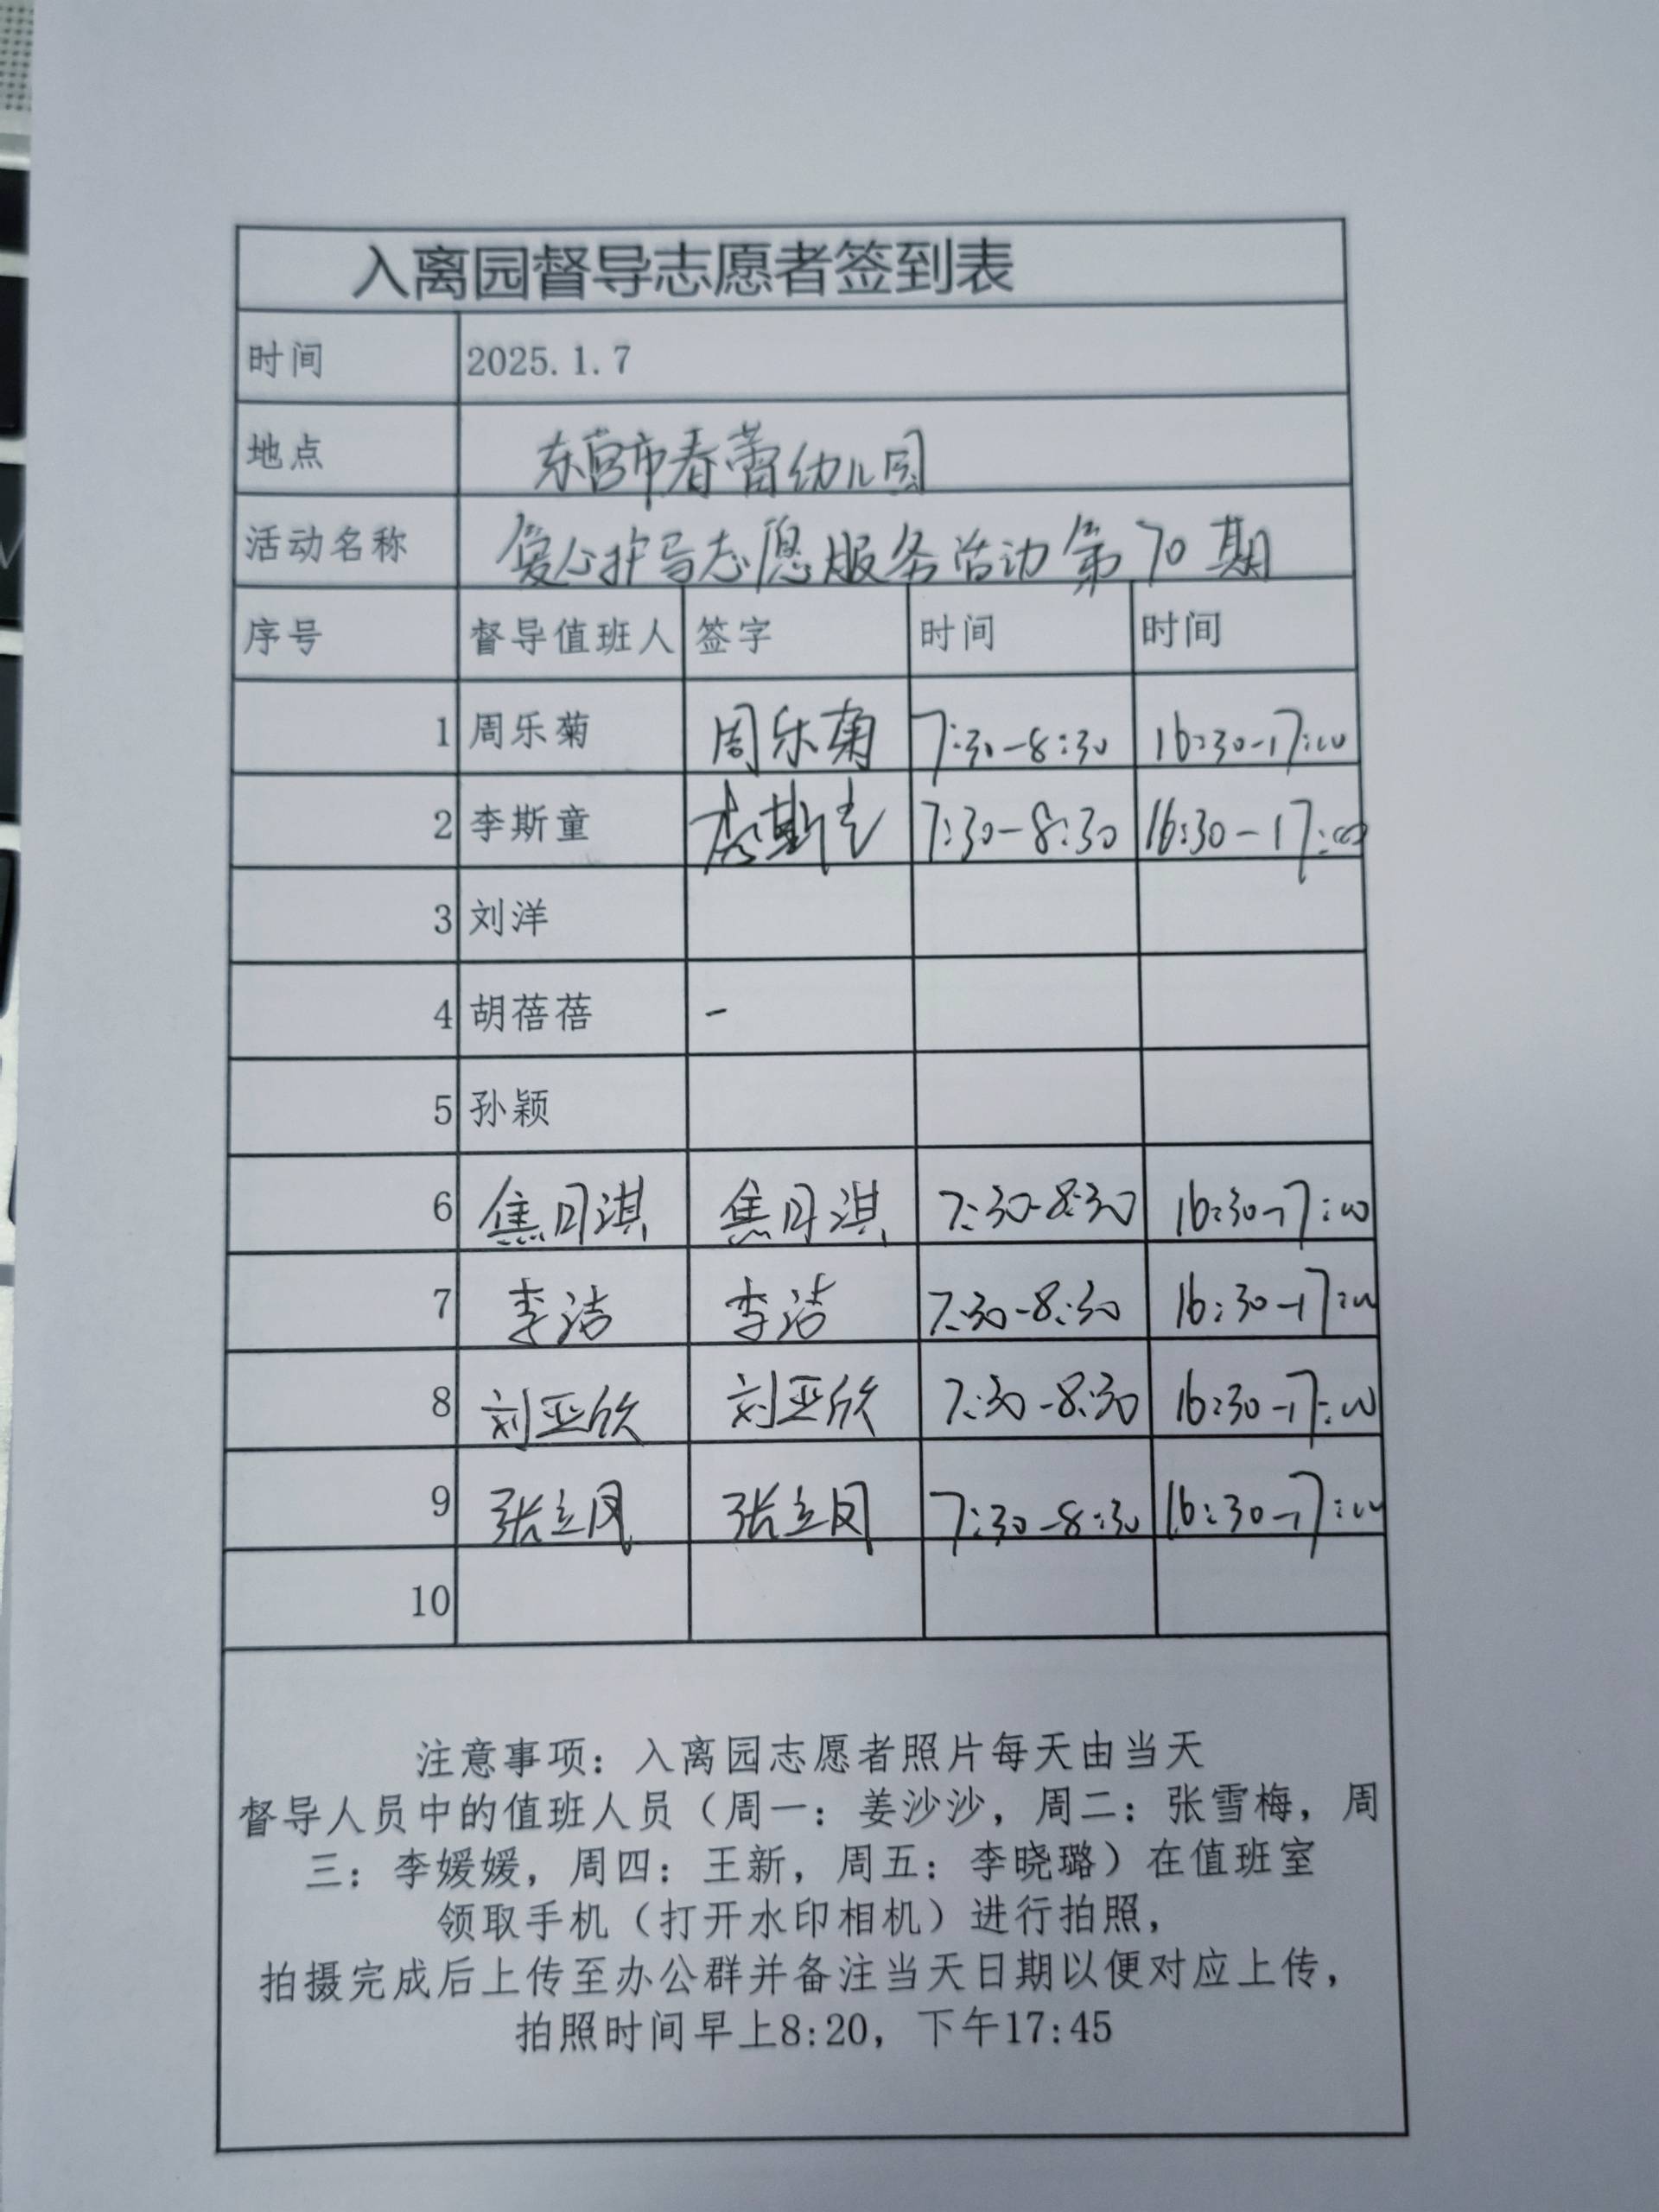 入离园督导志愿者签到表
时间 2025.1.7
地点 东营市春蕾幼儿园
活动名称 爱心护导志愿服务活动第70期
序号 督导值班人 签字 时间 时间
1 周乐菊 周乐菊 7:30-8:30 16:30-17:00
2 李斯童 李斯童 7:30-8:30 16:30-17:00
3 刘洋
4 胡蓓蓓 -
5 孙颖
6 焦月淇 焦月淇 7:30-8:30 16:30-17:00
7 李洁 李洁 7:30-8:30 16:30-17:00
8 刘亚欣 刘亚欣 7:30-8:30 16:30-17:00
9 张立凤 张立凤 7:30-8:30 16:30-17:00
10
注意事项：入离园志愿者照片每天由当天
督导人员中的值班人员（周一：姜沙沙，周二：张雪梅，周
三：李媛媛，周四：王新，周五：李晓璐）在值班室
领取手机（打开水印相机）进行拍照，
拍摄完成后上传至办公群并备注当天日期以便对应上传，
拍照时间早上8:20，下午17:45